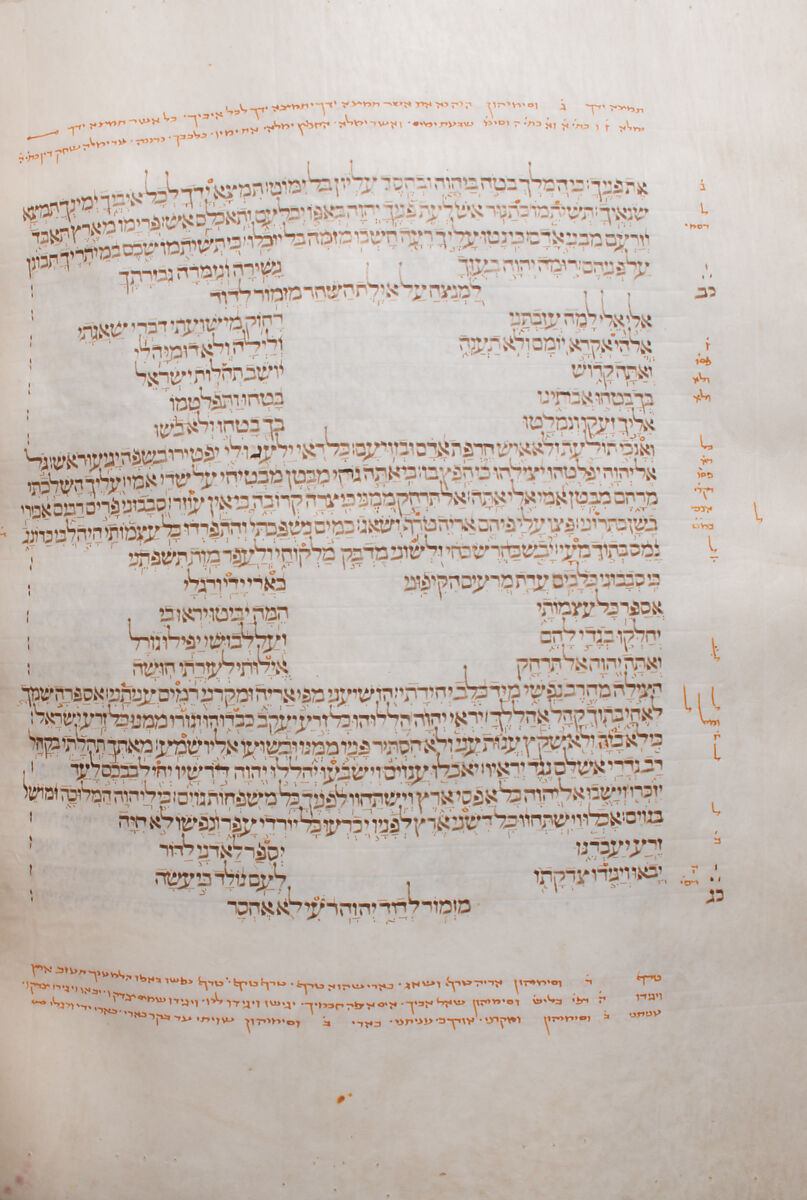 תמצא ידך ב̇ וסימנהון תמצא ידך לכל איביך כל אשר תמצא ידך
ימלא שבעת ימים ואשר ימלא את ימיו כלבבך
את פניך׃ כי המלך בטח ביהוה ובחסד עליון בל ימוט׃ תמצא ידך לכל איביך ימינך תמצא
שנאיך׃ תשיתמו כתנור אש לעת פניך יהוה באפו יבלעם ותאכלם אש׃ פרימו מארץ תאבד
וזרעם מבני אדם׃ כי נטו עליך רעה חשבו מזמה בל יוכלו׃ כי תשיתמו שכם במיתריך תכונן
על פניהם׃ רומה יהוה בעזך נשירה ונזמרה גבורתך
כב למנצח על אילת השחר מזמור לדוד
אלי אלי למה עזבתני רחוק מישועתי דברי שאגתי
אלהי אקרא יומם ולא תענה ולילה ולא דומיה לי
ואתה קדוש יושב תהלות ישראל
בך בטחו אבתינו בטחו ותפלטמו
אליך זעקו ונמלטו בך בטחו ולא בשו
ואנכי תולעת ולא איש חרפת אדם ובזוי עם׃ כל ראי ילעגו לי יפטירו בשפה יניעו ראש׃ גל
אל יהוה יפלטהו יצילהו כי חפץ בו׃ כי אתה גחי מבטן מבטיחי על שדי אמי׃ עליך השלכתי
מרחם מבטן אמי אלי אתה׃ אל תרחק ממני כי צרה קרובה כי אין עוזר׃ סבבוני פרים רבים אבירי
בשן כתרוני׃ פצו עלי פיהם אריה טרף ושאג׃ כמים נשפכתי והתפרדו כל עצמותי היה לבי כדונג
נמס בתוך מעי׃ יבש כחרש כחי ולשוני מדבק מלקוחי ולעפר מות תשפתני
כי סבבוני כלבים עדת מרעים הקיפוני כארי ידי ורגלי
אספר כל עצמותי המה יביטו יראו בי
יחלקו בגדי להם ועל לבושי יפילו גורל
ואתה יהוה אל תרחק אילותי לעזרתי חושה
הצילה מחרב נפשי מיד כלב יחידתי׃ הושיעני מפי אריה ומקרני רמים עניתני׃ אספרה שמך
לאחי בתוך קהל אהללך׃ יראי יהוה הללוהו כל זרע יעקב כבדוהו וגורו ממנו כל זרע ישראל׃
כי לא בזה ולא שקץ ענות עני ולא הסתיר פניו ממנו ובשועו אליו שמע׃ מאתך תהלתי בקהל
רב נדרי אשלם נגד יראיו׃ יאכלו ענוים וישבעו יהללו יהוה דורשיו יחי לבבכם לעד
יזכרו וישבו אל יהוה כל אפסי ארץ וישתחוו לפניך כל משפחות גוים׃ כי ליהוה המלוכה ומושל
בגוים׃ אכלו וישתחוו כל דשני ארץ לפניו יכרעו כל יורדי עפר ונפשו לא חיה
זרע יעבדנו יספר לאדני לדור
יבאו ויגידו צדקתו לעם נולד כי עשה
כג מזמור לדוד יהוה רעי לא אחסר
טרף ד̇ וסימנהון אריה טרף ושאג
ויגידו וסימנהון שאל אביך
עניתני ב̇ וסימנהון ומקרני אודך כי עניתני כארי ב̇ וסימנהון שויתי עד בקר כארי כארי ידי ורגלי